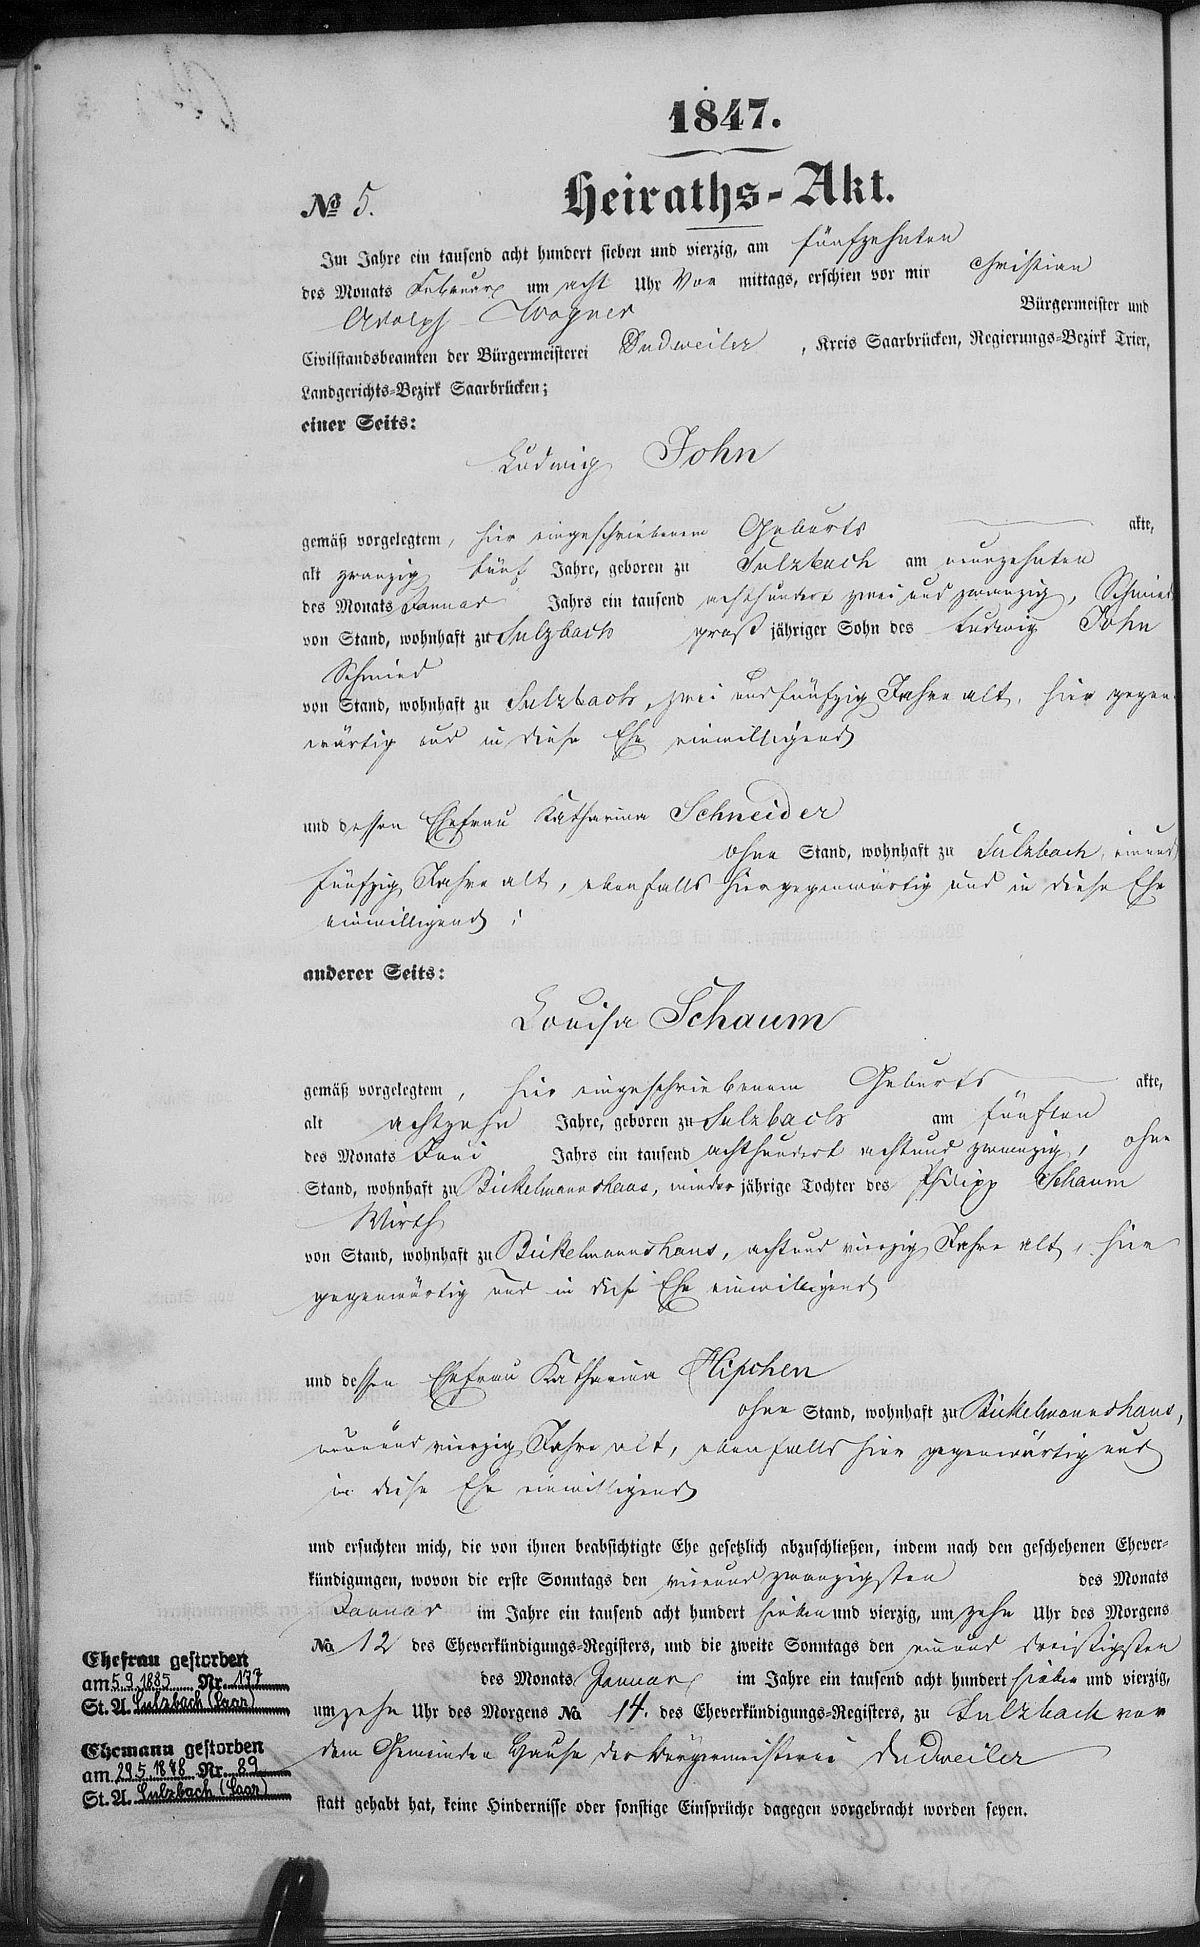 1847.
Heiraths-Akt.
№ 5.
Im Jahre ein tausend acht hundert sieben und vierzig, am fünfzehnten
des Monats Februar um acht Uhr Vor mittags, erschien vor mir Christian
Adolph Wagner Bürgermeister und
Civilstandsbeamten der Bürgermeisterei Dudweiler, Kreis Saarbrücken, Regierungs-Bezirk Trier,
Landgerichts-Bezirk Saarbrücken;
einer Seits:
Ludwig John
gemäß vorgelegtem, hier eingeschriebenem Geburts akte,
alt zwanzig fünf Jahre, geboren zu Sulzbach am neunzehnten
des Monats Januar Jahrs ein tausend achthundert zwei und zwanzig, Schmied
von Stand, wohnhaft zu Sulzbach groß jähriger Sohn des Ludwig John
Schmied
von Stand, wohnhaft zu Sulzbach, zwei und fünfzig Jahre alt, hier gegen
wärtig und in diese Ehe einwilligend
und dessen Ehefrau Katharina Schneider
ohne Stand, wohnhaft zu Sulzbach, einund
fünfzig Jahre alt, ebenfalls hier gegenwärtig und in diese Ehe
einwilligend;
anderer Seits:
Louisa Schaum
gemäß vorgelegtem, hier eingeschriebenem Geburts akte,
alt achtzehn Jahre, geboren zu Sulzbach am fünften
des Monats Juni Jahrs ein tausend achthundert achtund zwanzig, ohne
Stand, wohnhaft zu Bickelmannshaus, minder jährige Tochter des Philipp Schaum
Wirth
von Stand, wohnhaft zu Bickelmannshaus, achtund vierzig Jahre alt, hier
gegenwärtig und in diese Ehe einwilligend
und dessen Ehefrau Katharina Hipchen
ohne Stand, wohnhaft zu Bickelmannshaus,
neunund vierzig Jahre alt, ebenfalls hier gegenwärtig und
in diese Ehe einwilligend
und ersuchten mich, die von ihnen beabsichtigte Ehe gesetzlich abzuschließen, indem nach den geschehenen Ehever-
kündigungen, wovon die erste Sonntags den vierund zwanzigsten des Monats
Januar im Jahre ein tausend acht hundert sieben und vierzig, um zehn Uhr des Morgens
№ 12 des Eheverkündigungs-Registers, und die zweite Sonntags den einund dreisigsten
des Monats Januar im Jahre ein tausend acht hundert sieben und vierzig,
um zehn Uhr des Morgens № 14. des Eheverkündigungs-Registers, zu Sulzbach vor
dem Gemeinden Hause der Bürgermeisterei Dudweiler
statt gehabt hat, keine Hindernisse oder sonstige Einsprüche dagegen vorgebracht worden seyen.
Ehefrau gestorben
am 5.9.1885 Nr. 177
St. A. Sulzbach (Saar)
Ehemann gestorben
am 29.5.1878 Nr. 89
St. A. Sulzbach (Saar)